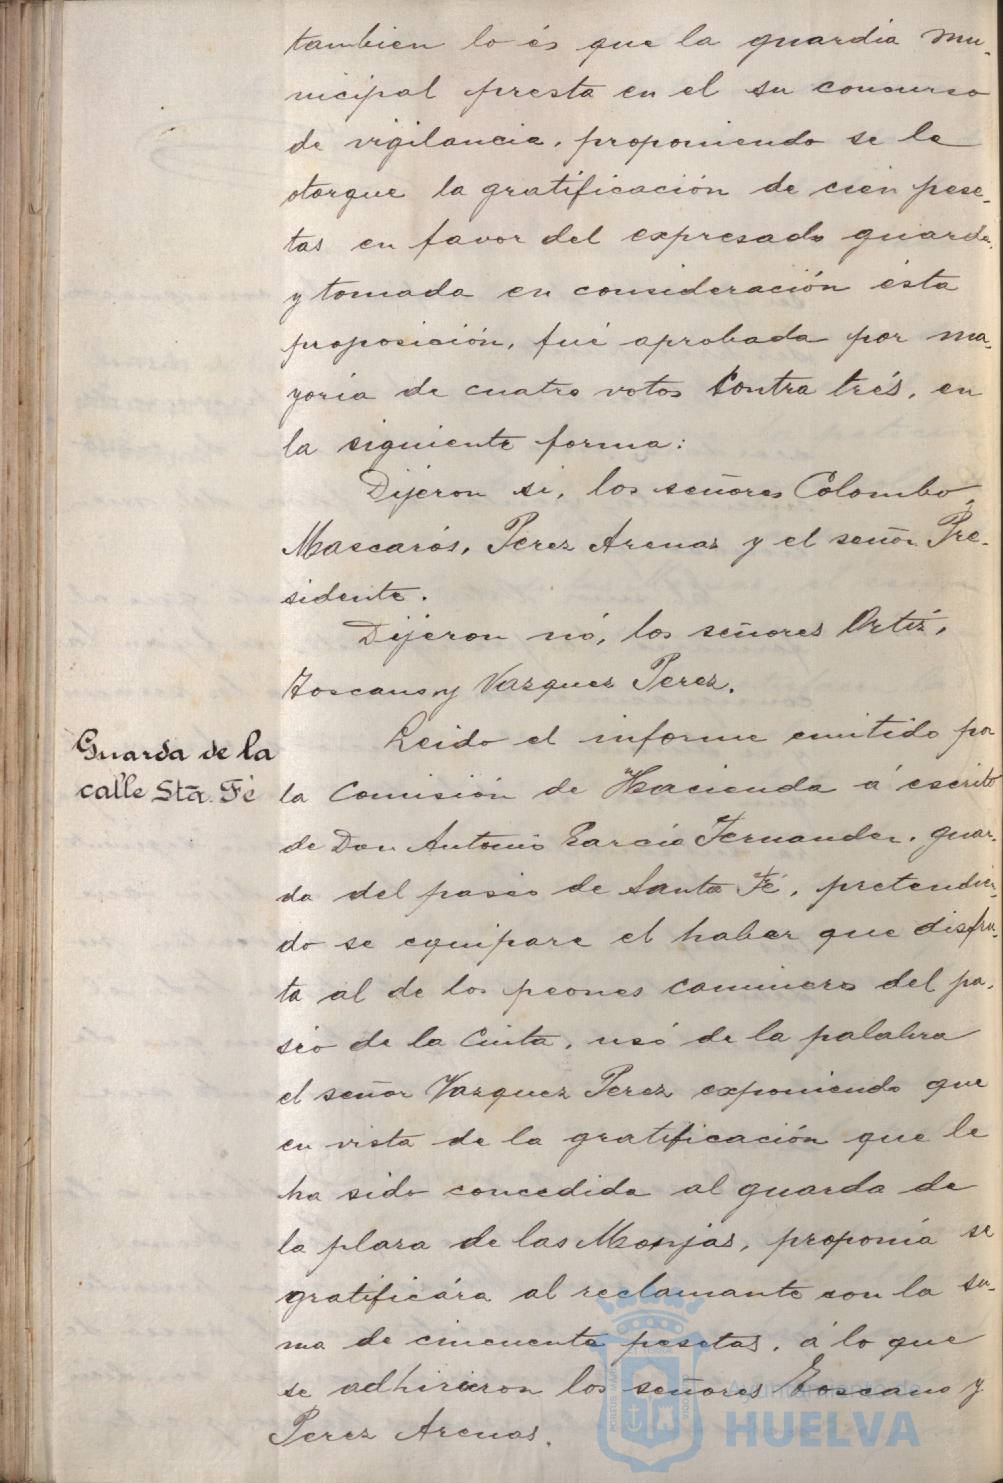 tambien lo és que la guardia mu-
nicipal presta en el su concurso
de vigilancia, proponiendo se le
otorgue la gratificación de cien pese-
tas en favor del expresado guarda,
y tomada en consideración ésta
proposición, fué aprobada por ma-
yoria de cuatro votos contra trés, en
la siguiente forma:
Dijeron si, los señores Colombo,
Mascarós, Pérez Arenas y el señor Pre-
sidente.
Dijeron nó, los señores Ortiz,
Toscano y Vazquez Perez.
Guarda de la
calle Stā. Fé
Leido el informe emitido por
la Comisión de Hacienda á escrito
de Don Antonio García Fernandez, guar-
da del paseo de Santa Fé, pretendien-
do se equipare el haber que disfru-
ta al de los peones camineros del pa-
séo de la Cinta, usó de la palabra
el señor Vazquez Perez exponiendo que
en vista de la gratificación que le
ha sido concedida al guarda de
la plaza de las Monjas, proponia se
gratificára al reclamante con la su-
ma de cincuenta pesetas, á lo que
se adhirieron los señores Toscano y
Perez Arenas.
Ayuntamiento de
HUELVA